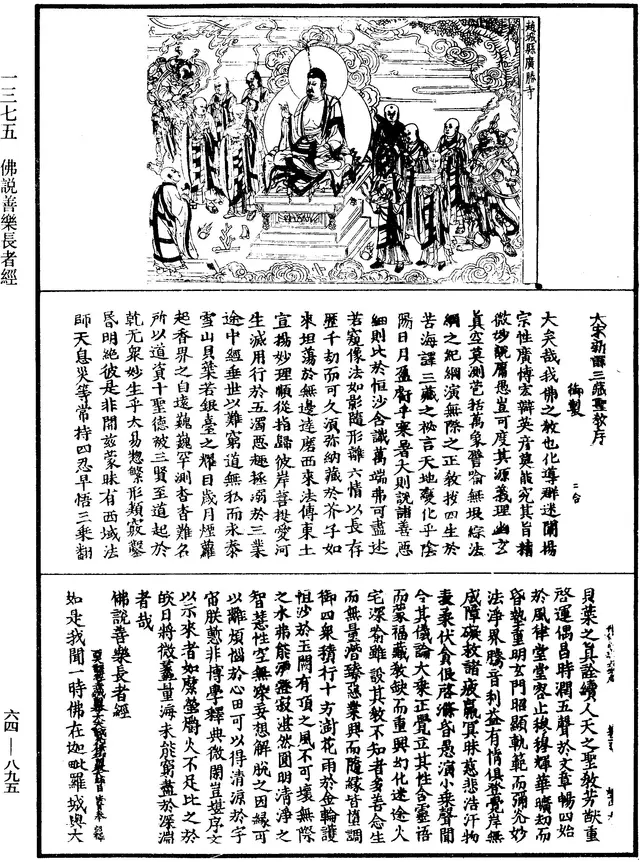 趙城縣廣勝寺
一三七五　佛説善樂長者經
大宋新譯三藏聖教序
御製
大矣哉我佛之教也化導群迷闡揚
宗性廣博宏辯英彥莫能究其旨精
微妙說庸愚豈可度其源義理幽玄
真空莫測苞括萬象譬喻無垠綜法
網之紀綱演無際之正教拔四生於
苦海譯三藏之秘言天地變化乎陰
陽日月盈虧乎寒暑大則說諸善惡
細則比於恒沙含識萬端弗可盡述
若窺像法如影隨形離六情以長存
歷千劫而可久須弥納藏於芥子如
來坦蕩於無邊達磨西來法傳東土
宣揚妙理順從指歸彼岸菩提愛河
生滅用行於五濁惡趣拯溺於三業
途中經垂世以難窮道無私而永泰
雪山貝葉若銀臺之耀目歲月煙蘿
起香界之自遠巍巍罕測杳杳難名
所以道資十聖德被三賢至道起於
乾元衆妙生乎太易揔繁形類竅鑿
昏明絕彼是非開茲蒙昧有西域法
師天息災等常持四忍早悟三乘翻
貝葉之真詮續人天之聖教芳猷重
啓運偶昌時潤五聲於文章暢四始
於風律堂堂容止穆穆輝華曠劫而
昏墊重明玄門昭顯軌範而彌光妙
法淨界騰音利益有情俱登覺岸無
障礙救諸疲羸冥昧慈悲浩汗物
表柔伏貪佷啓滌昏愚演小乘聲聞
合其儀論大乘正覺立其性含靈悟
而蒙福藏教缺而重興幻化迷途火
宅深喻雖設其教不知者多善念生
而無量潛臻惡業興而隨緣皆墮調
御四衆積行十方澍花雨於金輪護
恒沙於玉闕有頂之風不可壞無際
之水弗能漂澄寂湛然圓明清淨之
智慧性空無染妄想解脫之因緣可
以離煩惱於心田可以得清涼於宇
宙朕慙非博學釋典微閑豈堪序文
以示來者如縻螢爝火不足比之於
皎日將微蠡量海未能窮盡於深淵
者哉
佛說善樂長者經
如是我聞一時佛在迦毗羅城與大
六四—八九五